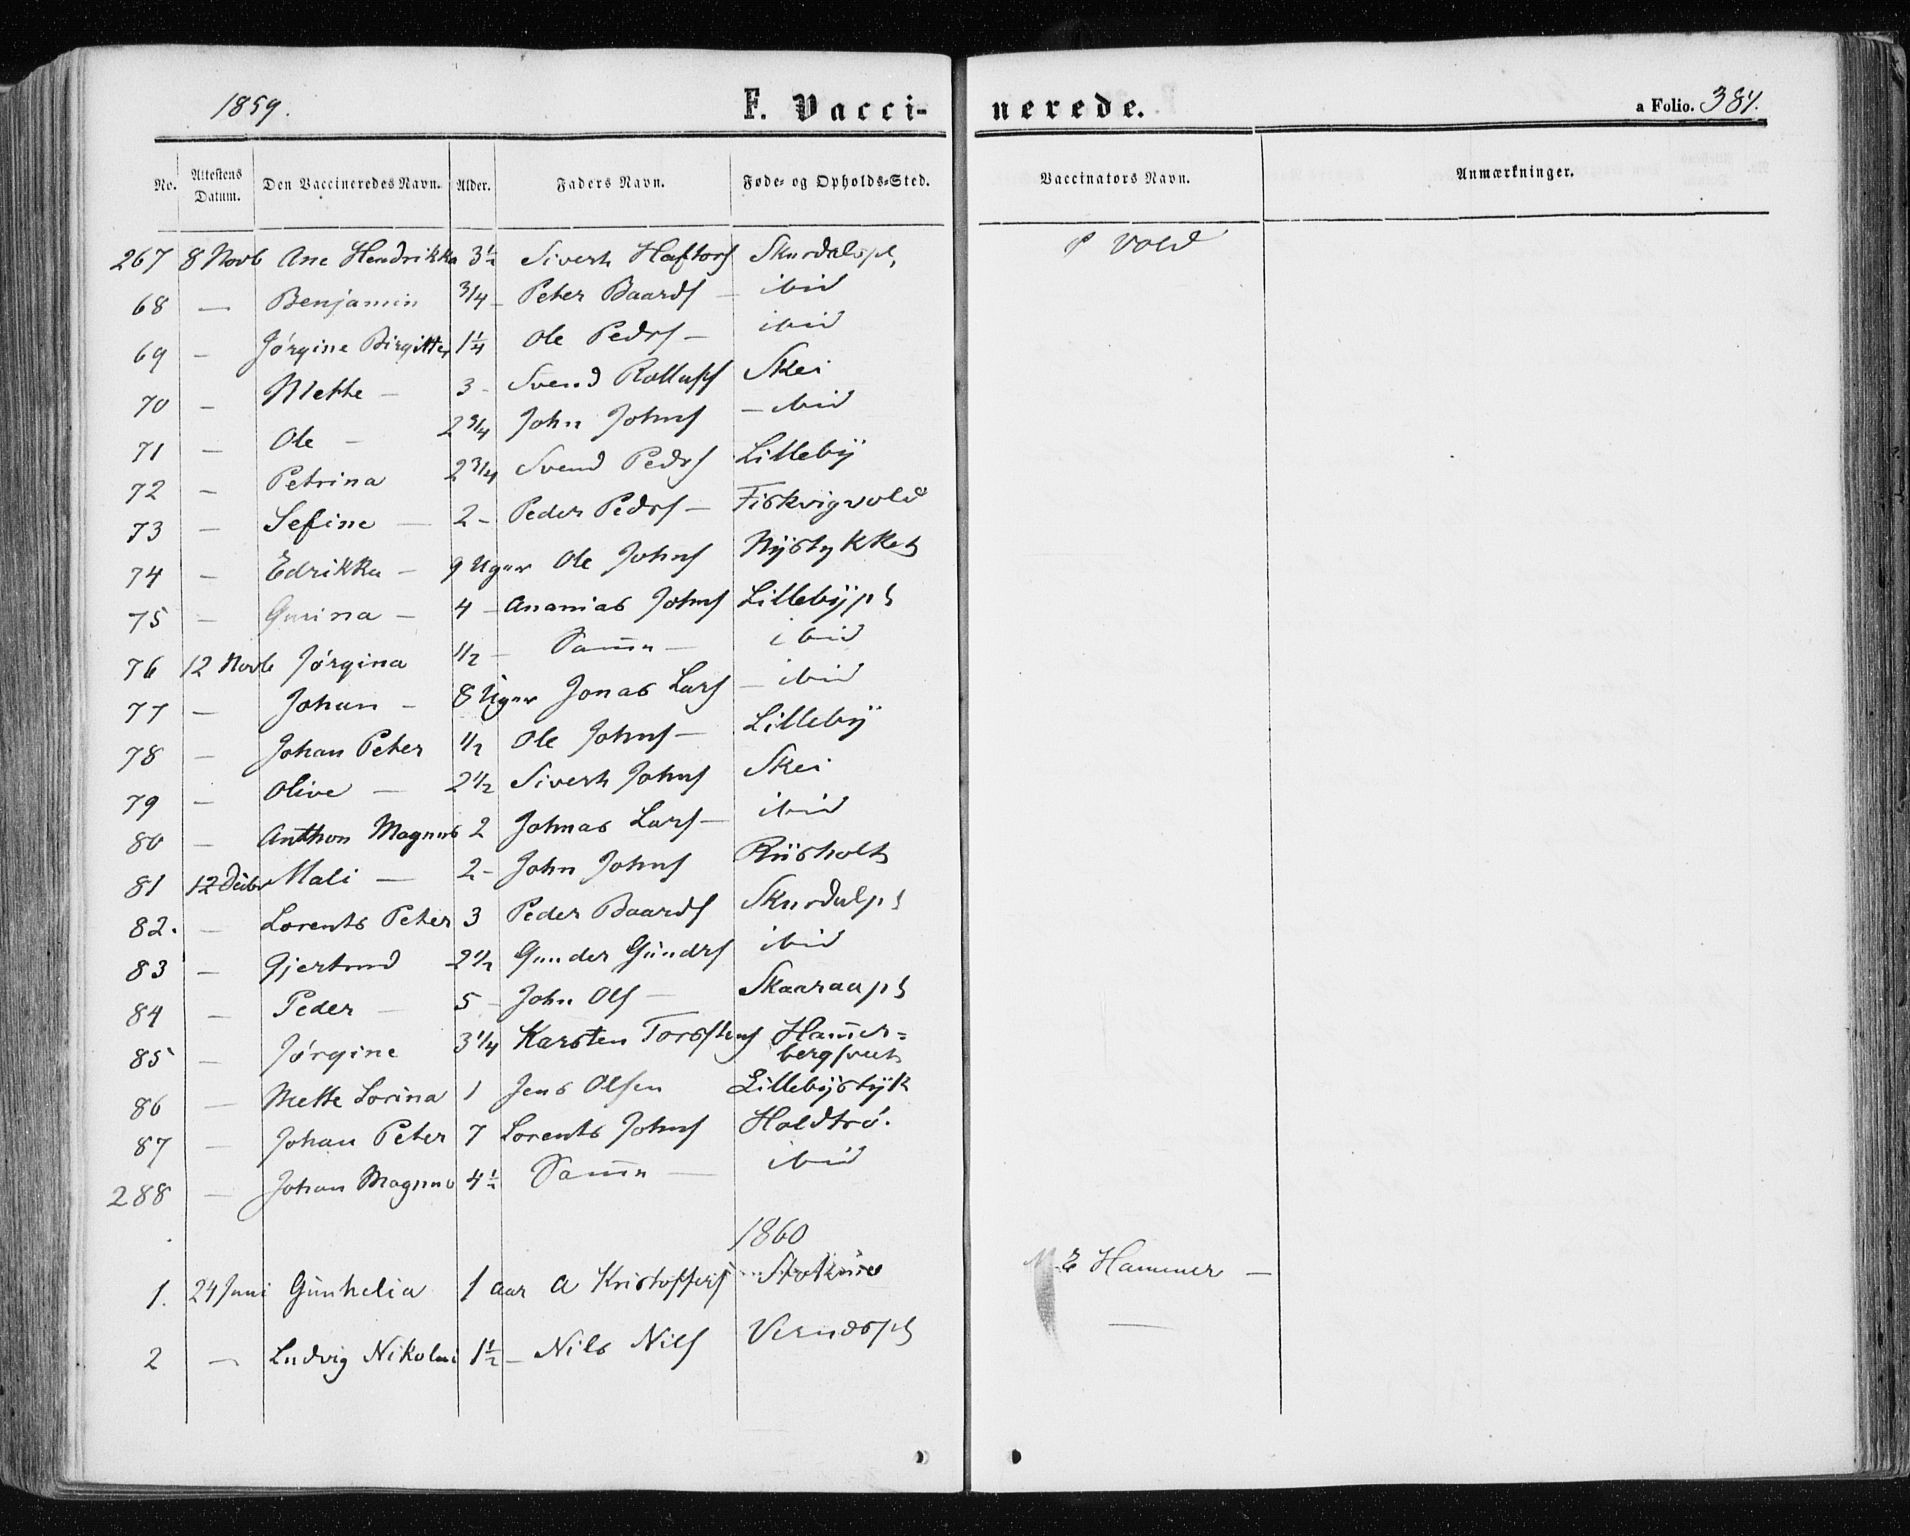 1859. F. Vacci- nerede. a Folio. 384.
No. Attestens Datum. Den Vaccineredes Navn. Alder. Faders Navn. Føde- og Opholds-Sted. Vaccinators Navn. Anmærkninger.
267 8 Novb Ane Hendrikka 3½ Sivert Haftors Skurdalspl P Vold
68 — Benjamin 3/4 — Peter Baards — ibid
69 — Jørgine Birgitte 1¼ Ole Peders — ibid
70 — Mette — 3 — Svend Skei
71 — Ole — 2 3/4 John Johns — ibid
72 — Petrina 2 3/4 Svend Peders Lilleby
73 — Sefine — 2 — Peder Peders — Fiskvigvold
74 — Edrikka — 9 Uger Ole Johns Nystykket
75 — Gurina — 4 — Ananias Johns Lillebypl
76 12 Novb Jørgina 1/2 — Samme — ibid
77 — Johan — 8 Uger Jonas Lars — ibid
78 — Johan Peter 1/2 Ole Johns — Lilleby
79 — Olive — 2 1/2 Sivert Johns Skei
80 — Anthon Magnus 2 Johnas Lars — ibid
81 12 Decbr Mali — 2 — John Johns Riisholt
82. — Lorents Peter 3 Peder Baards Skurdalpl
83 — Gjertrud 2 1/2 Gunder Gunders ibid
84 — Peder — 5 — John Ols — Skaaraapl
85 — Jørgine 3 1/4 Karsten Torstens Hammer=
berg
86 — Mette Lorina 1 Jens Olsen Lillebystyk
87 — Johan Peter 7 Lorents Johns Holdtrø.
288 — Johan Magnus 4½ Samme — ibid
1860
1. 24 Juni Gunhelia 1 aar A Kristoffers M E Hammer —
2 — Ludvig Nikolai 1½ — Nils Nils —